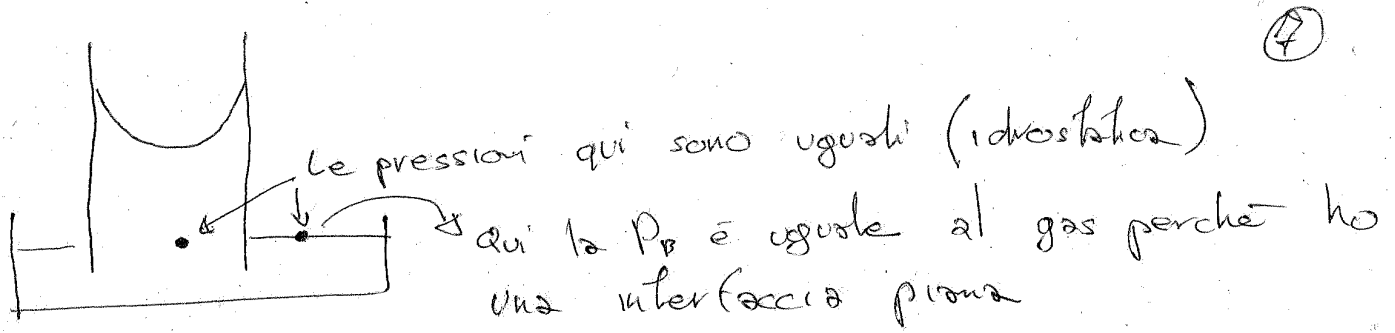 7
Le pressioni qui sono uguali (idrostatica)
Qui la PB è uguale al gas perché ho
una interfaccia piana